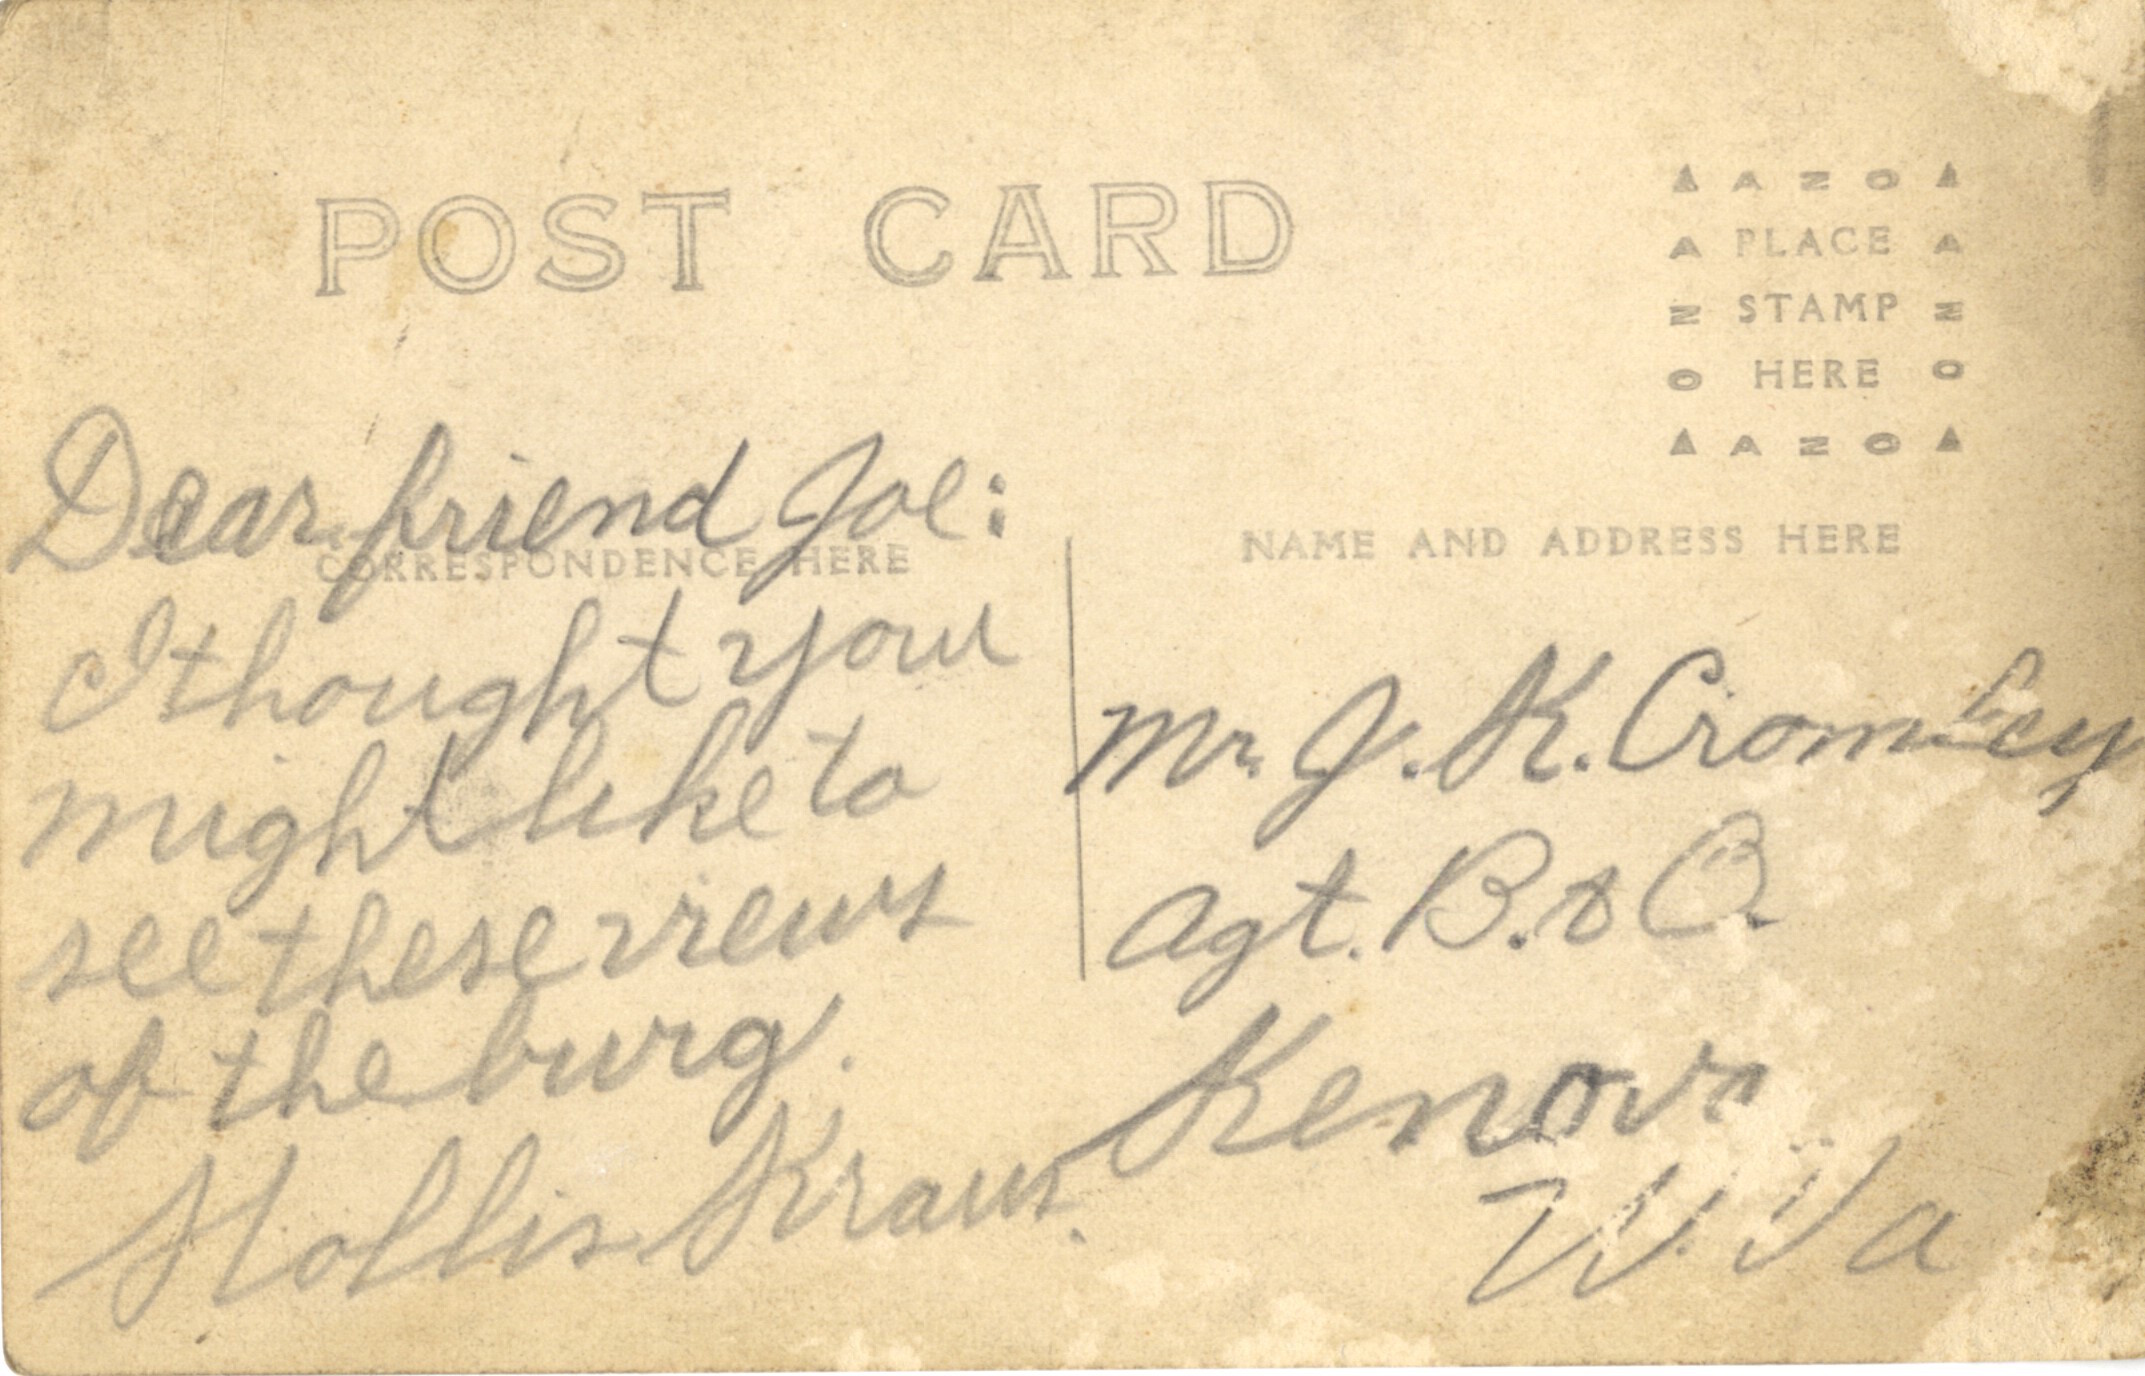 POST CARD
AZO
PLACE
STAMP
HERE
AZO
CORRESPONDENCE HERE
NAME AND ADDRESS HERE
Dear friend Joe:
I thought you
might like to
see these views
of the burg.
Hollis Kraus.
Mr. J. K. Cromley
Agt. B. & O.
Kenova
W. Va